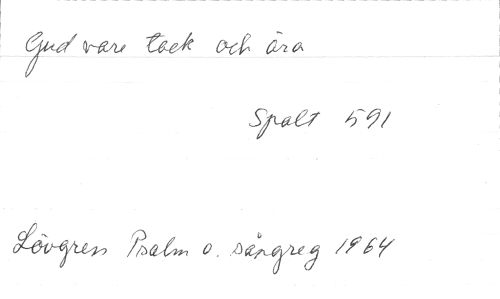 Gud vare tack och ära
Spalt 591
Lövgren Psalm o. sångreg 1964